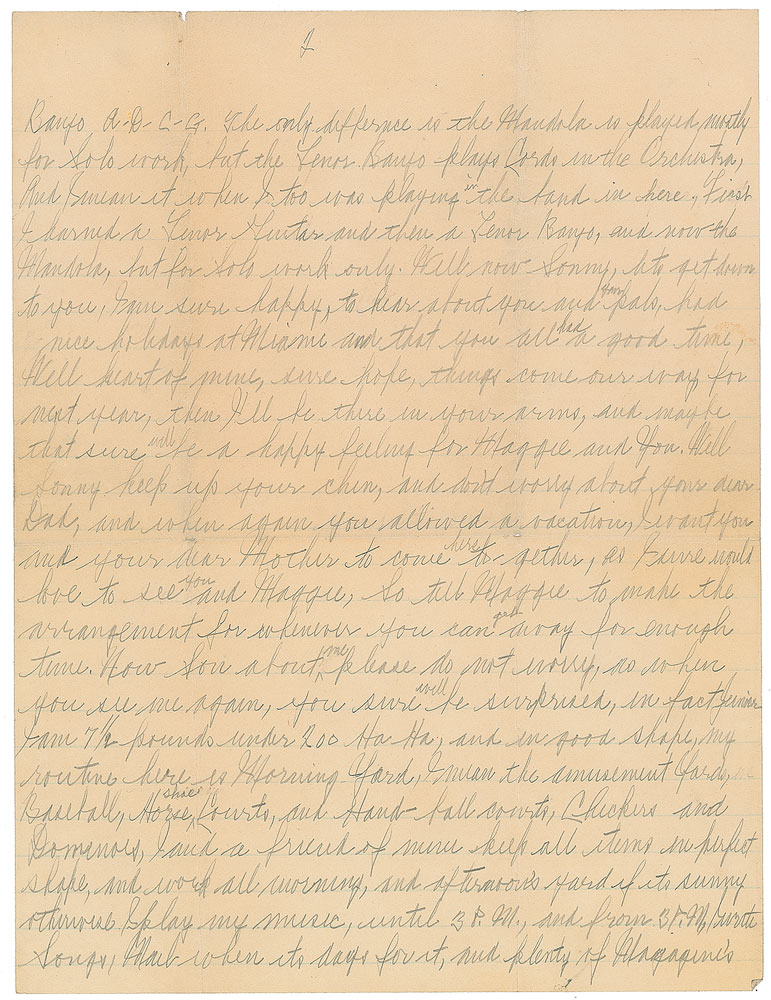 2
Banjo, A-D-C-G. The only differnce is the Mandola is played mostly
for Solo work, but the Tenor Banjo plays Cords in the Orchestra,
And I mean it when I too was playing in the band in here, First
I learned a Tenor Guitar and then a Tenor Banjo, and now the
Mandola, but for Solo work only. Well now Sonny, lets get down
to you, I am sure happy, to hear about you and your pals, had
nice holidays at Miami and that you all had a good time,
Well heart of mine, sure hope, things come our way for
next year, then I'll be there in your arms, and maybe
that sure will be a happy feeling for Maggie and You. Well
Sonny keep up your chin, and don't worry about your dear
Dad, and when again you allowed a vacation, I want you
and your dear Mother to come here to-gether, as I sure would
love to see you and Maggie, So tell Maggie to make the
arrangement for whenever you can get away for enough
time. Now Son about me, please do not worry, as when
you see me again, you sure will be surprised, in fact Junior
I am 7½ pounds under 200 Ha Ha, and in good shape, my
routine here is Morning Yard, I mean the amusement Yard,
Baseball, Horse shoes Courts, and Hand-ball courts, Checkers and
Domenoes, I and a friend of mine keep all items in perfect
shape, and work all morning, and afternoon's yard if its sunny
otherwise I play my music, until 3 P.M., and from 3 P.M. I write
Songs, Mail when its days for it, and plenty of Magagine's